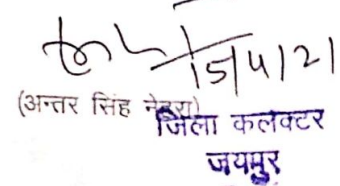 15/4/21
(अन्तर सिंह नेहरा)
जिला कलक्टर
जयपुर